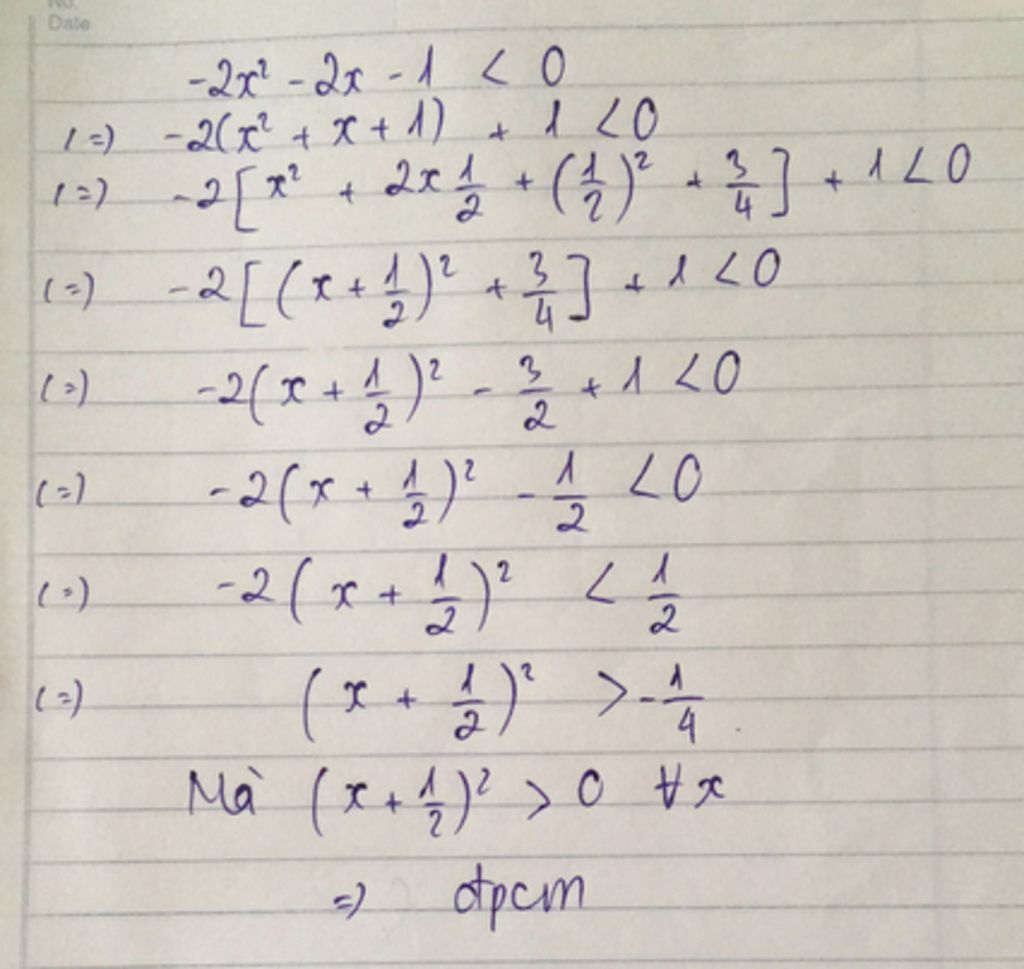 No.
Date
-2x² - 2x - 1 < 0
(=) -2(x² + x + 1) + 1 < 0
(=) -2[x² + 2x 1/2 + (1/2)² + 3/4] + 1 < 0
(=) -2[(x + 1/2)² + 3/4] + 1 < 0
(=) -2(x + 1/2)² - 3/2 + 1 < 0
(=) -2(x + 1/2)² - 1/2 < 0
(=) -2(x + 1/2)² < 1/2
(=) (x + 1/2)² > -1/4
Mà (x + 1/2)² > 0 ∀x
=) đpcm